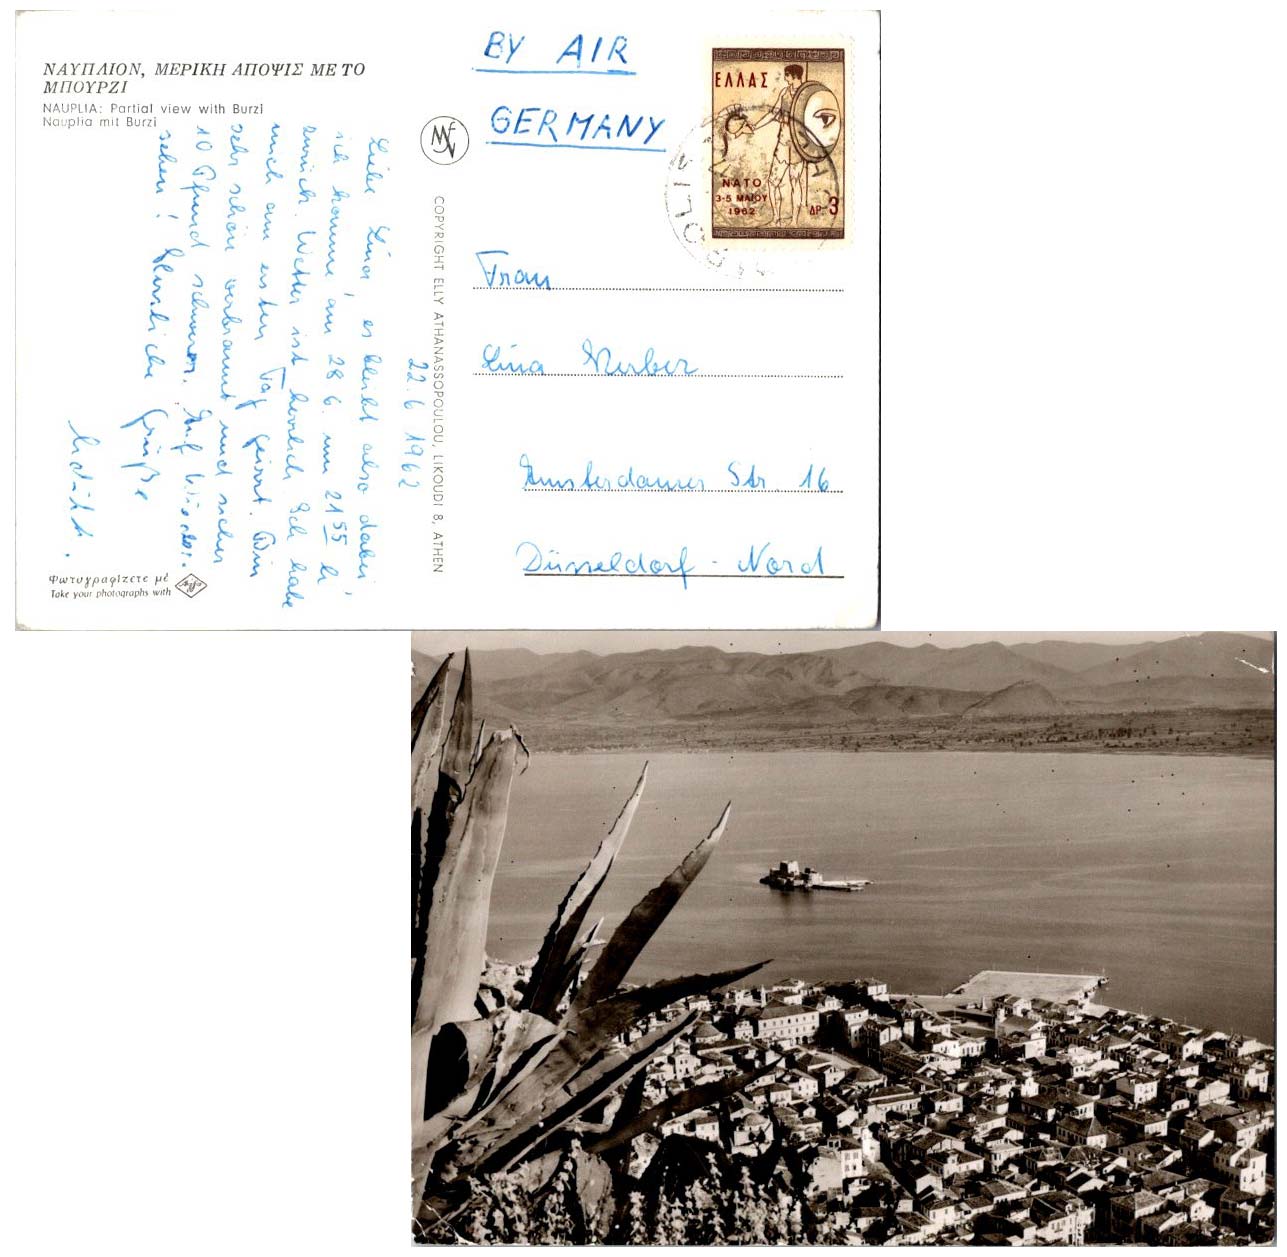 ΝΑΥΠΛΙΟΝ, ΜΕΡΙΚΗ ΑΠΟΨΙΣ ΜΕ ΤΟ
ΜΠΟΥΡΖΙ
NAUPLIA: Partial view with Burzi
Nauplia mit Burzi
22.6 1962
Liebe Lina, es bleibt also dabei,
ich komme am 28 6. um 21 55 h
zurück. Wetter ist herrlich. Ich habe
mich am ersten Tag geirrt. Bin
sehr schön verbrannt und sicher
10 Pfund schwerer. Auf Wieder-
sehen! Herzliche Grüße
Φωτογραφίζετε μέ
Take your photographs with
Agfa
COPYRIGHT ELLY ATHANASSOPOULOU, LIKOUDI 8, ATHEN
BY AIR
GERMANY
ΕΛΛΑΣ
ΝΑΤΟ
3-5 ΜΑΪΟΥ
1962
ΔΡ. 3
Frau
Lina
Amsterdamer Str. 16
Düsseldorf - Nord